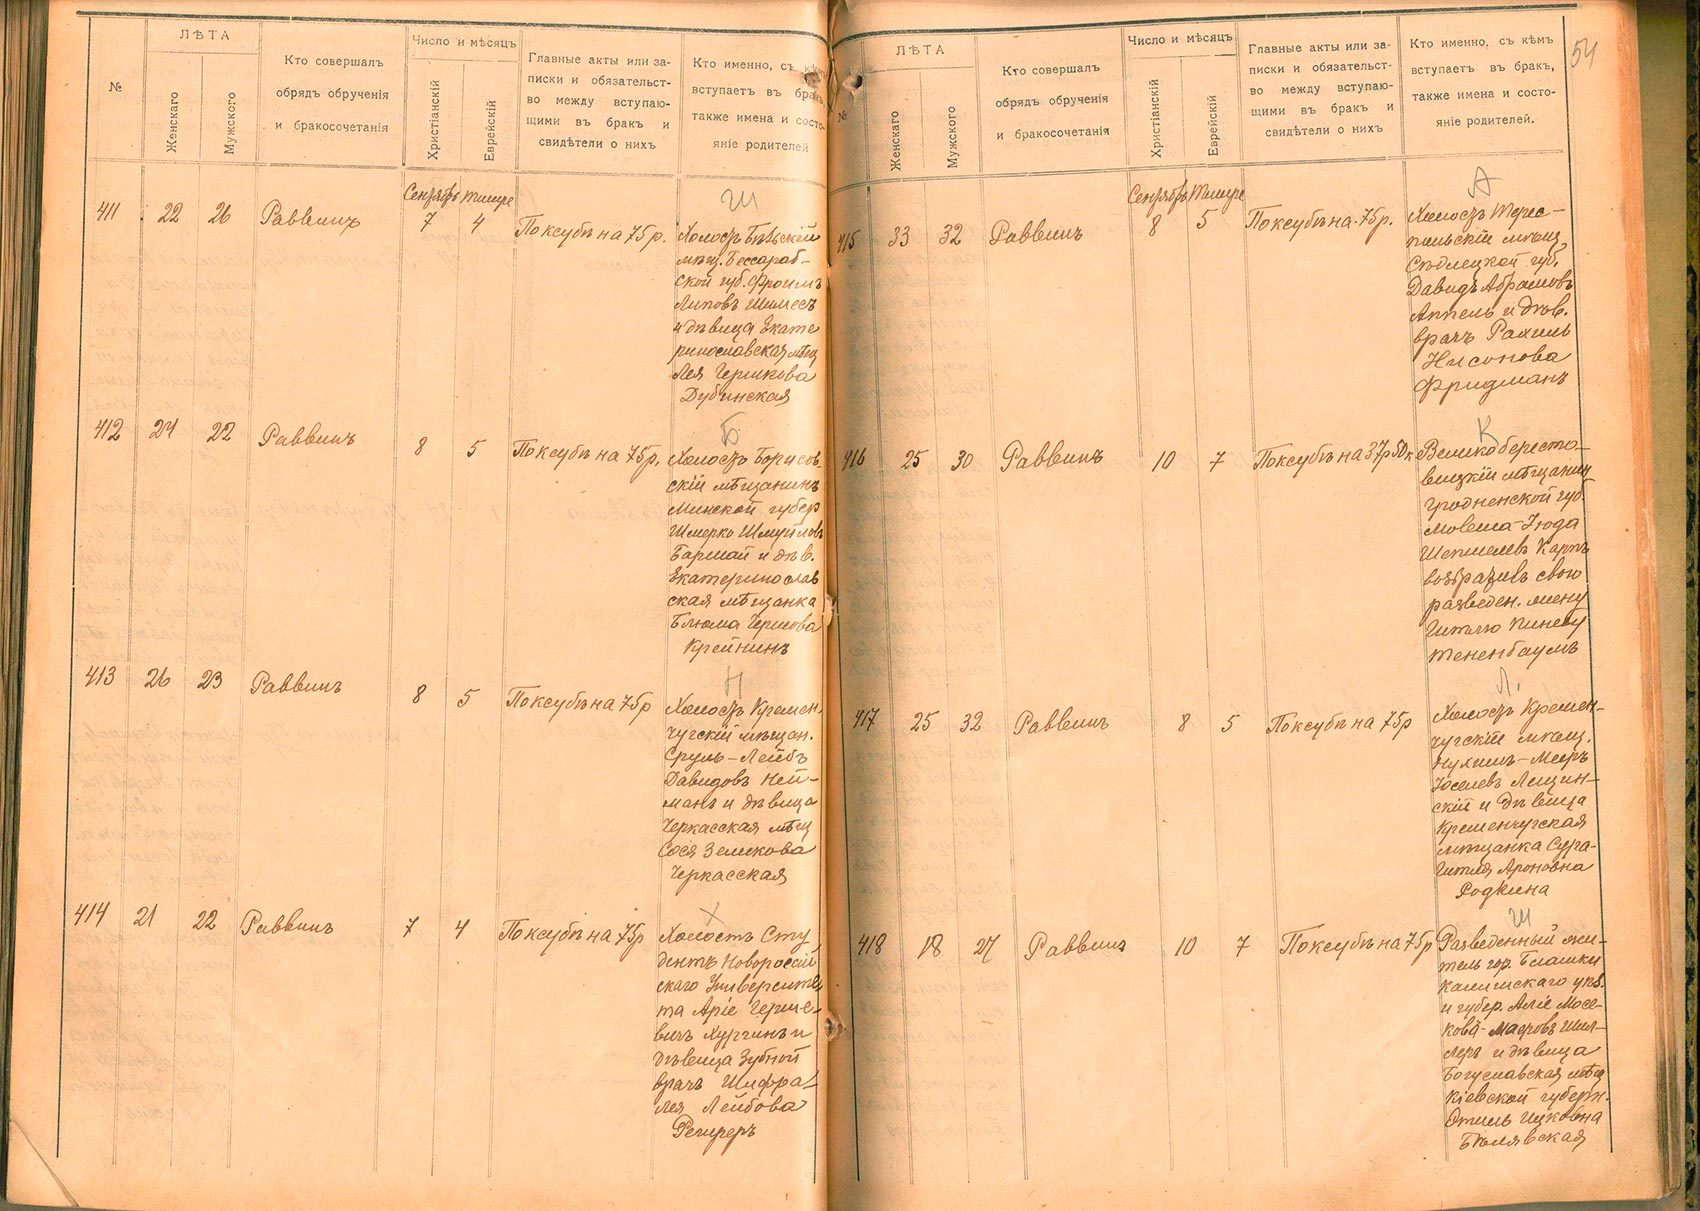 №
ЛѢТА
Женскаго
Мужского
Кто совершалъ
обрядъ обрученія
и бракосочетанія
Число и мѣсяцъ
Христіанскій
Еврейскій
Главные акты или за-
писки и обязательст-
во между вступаю-
щими въ бракъ и
свидѣтели о нихъ
Кто именно, съ кѣмъ
вступаетъ въ бракъ,
также имена и состо-
яніе родителей
Сентябрь Тишре
Ш
411 22 26 Раввинъ 7 4 По ксубѣ на 75 р.
Холостъ Бѣльскій
мѣщ. Бессараб-
ской губ. Фроимъ
Липовъ Шимесъ
и дѣвица Екате
ринославская мѣщ
Лея Гершкова
Дубинская
Б
412 24 22 Раввинъ 8 5 По ксубѣ на 75 р.
Холостъ Борисов-
скій мѣщанинъ
Минской губер
Шмерко Шмуйловъ
Баршай и дѣв.
Екатеринослав
ская мѣщанка
Блюма Гершова
Крейнинъ
Н
413 26 23 Раввинъ 8 5 По ксубѣ на 75 р
Холостъ Кремен-
чугскій мѣщан.
Сруль-Лейбъ
Давидовъ Ней-
манъ и дѣвица
Черкасская мѣщ
Сося Зеликова
Черкасская
Х
414 21 22 Раввинъ 7 4 По ксубѣ на 75 р
Холостъ Сту
дентъ Новороссій
скаго Университе
та Аріе Герше-
вичъ Хургинъ и
дѣвица Зубной
врачъ Шифра-
Лея Лейбова
54
№
ЛѢТА
Женскаго
Мужского
Кто совершалъ
обрядъ обрученія
и бракосочетанія
Число и мѣсяцъ
Христіанскій
Еврейскій
Главные акты или за-
писки и обязательст-
во между вступаю-
щими въ бракъ и
свидѣтели о нихъ
Кто именно, съ кѣмъ
вступаетъ въ бракъ,
также имена и состо-
яніе родителей.
Сентябрь Тишре
А
415 33 32 Раввинъ 8 5 По ксубѣ на 75 р.
Холостъ Терес-
польскій мѣщ.
Сѣдлецкой губ.
Давидъ Абрамовъ
Аппель и дѣв.
врачъ Рахиль
Нисонова
Фридманъ
К
416 25 30 Раввинъ 10 7 По ксубѣ на 37 р 50 к
Великобересто-
вицкій мѣщанин
Гродненской губ.
Мовша-Іюда
Шепшелевъ Карпъ
возвративъ свою
разведен. жену
Гитлю Пиневу
Тененбаумъ
Л.
417 25 32 Раввинъ 8 5 По ксубѣ на 75 р
Холостъ Кремен-
чугскій мѣщ.
Нухимъ-Мееръ
Іоселевъ Лещин-
скій и дѣвица
Кременчугская
мѣщанка Сура-
Гитля Ароновна
Родкина
Ш
418 18 27 Раввинъ 10 7 По ксубѣ на 75 р
Разведенный жи-
тель гор. Блашки
Калишскаго уѣз.
и губер.
леръ и дѣвица
Богуславская мѣщ
Кіевской губерн.
Этиль Ицковна
Бѣлявская